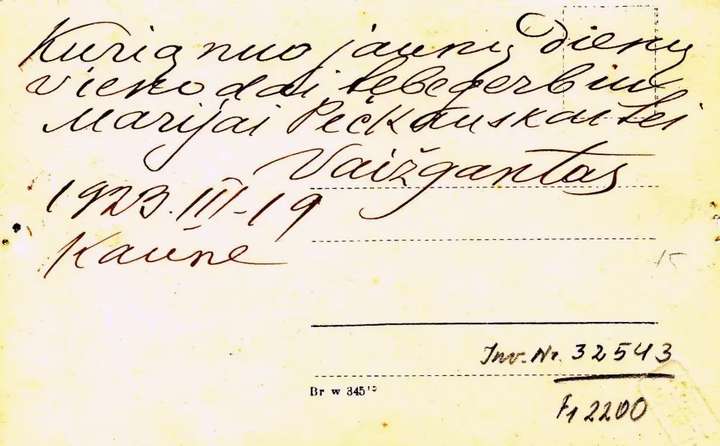 Kurią nuo jaunų dienų
vienodai tebegerbiu
Marijai Pečkauskaitei
Vaižgantas
1923.III-19
Kaune
15
Inv. Nr. 32543
Br w 345
F1 2200